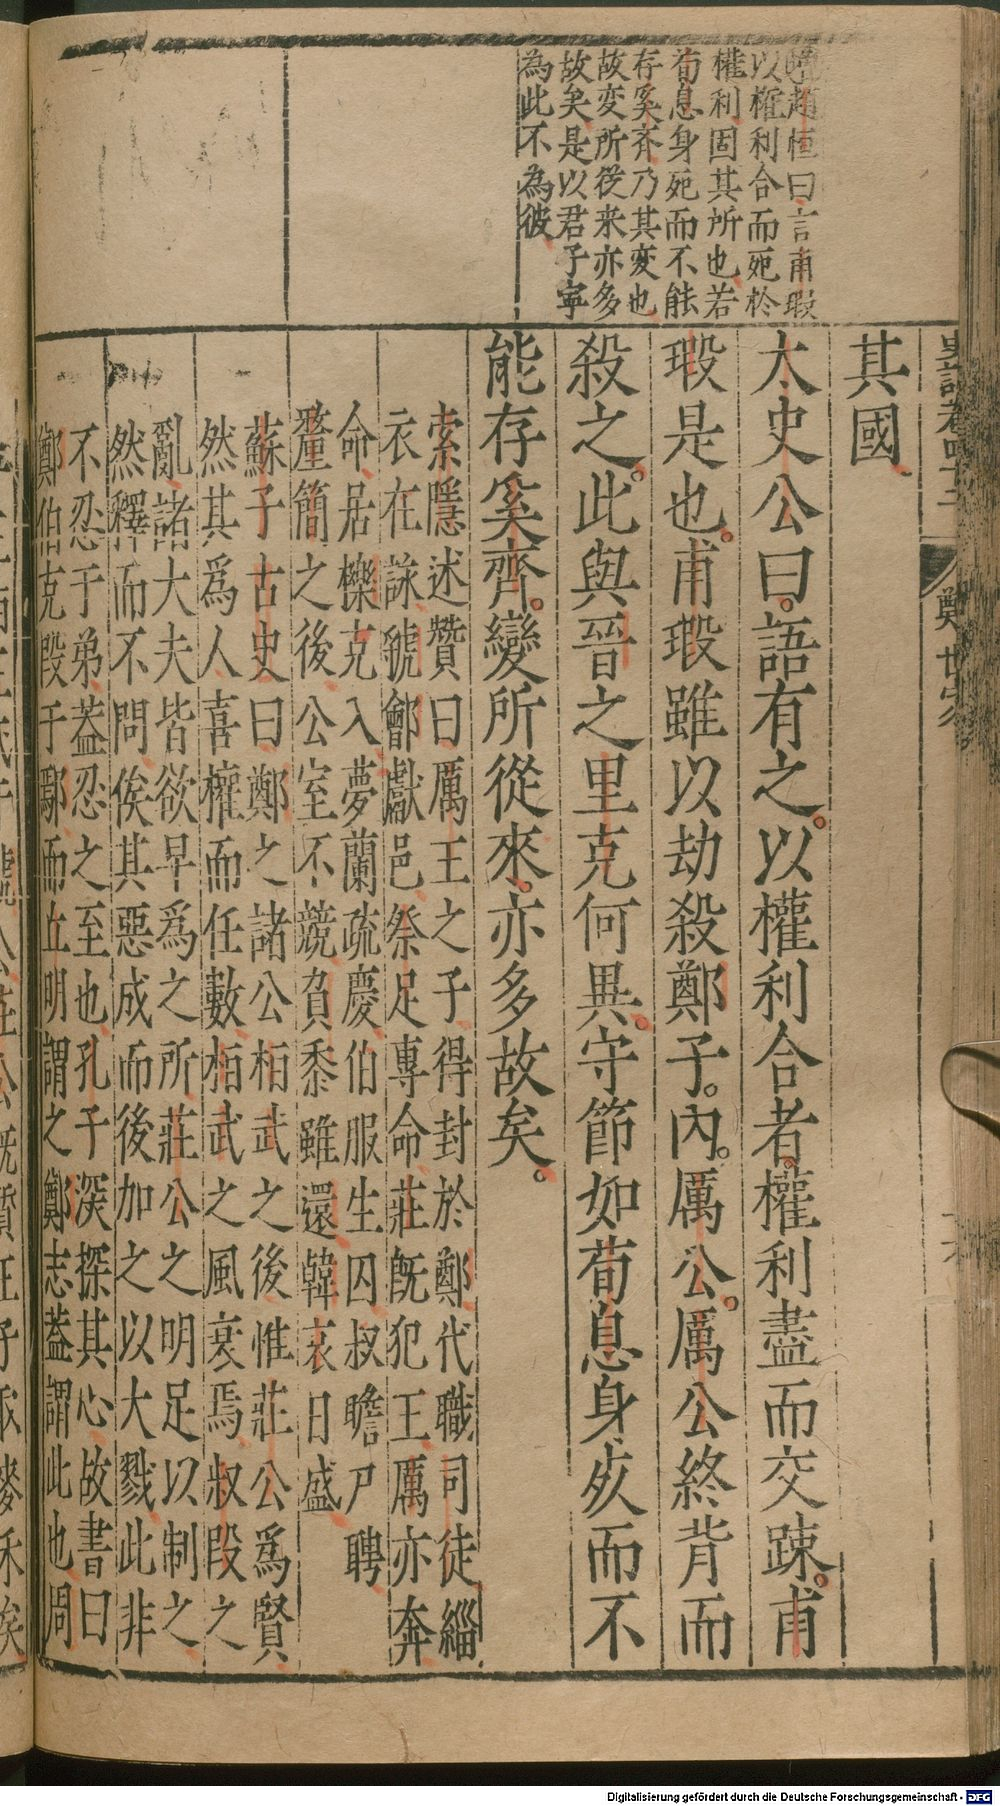 史記卷四十二
鄭世家
其國
太史公曰語有之以權利合者權利盡而交踈甫
瑕是也甫瑕雖以劫殺鄭子內厲公厲公終背而
殺之此與晉之里克何異守節如荀息身死而不
能存奚齊變所從來亦多故矣
索隱述贊曰厲王之子得封於鄭代職司徒緇
衣在詠虢鄶獻邑祭足專命莊既犯王厲亦奔
命居櫟克入夢蘭疏慶伯服生囚叔瞻尸聘
釐簡之後公室不競負黍雖還韓哀日盛
蘇子古史曰鄭之諸公桓武之後惟莊公爲賢
然其爲人喜權而任數桓武之風衰焉叔段之
亂諸大夫皆欲早爲之所莊公之明足以制之
然釋而不問俟其惡成而後加之以大戮此非
不忍于弟葢忍之至也孔子深探其心故書曰
鄭伯克段于鄢而丘明謂之鄭志葢謂此也周
趙恒曰言甫瑕
以權利合而死於
權利固其所也若
荀息身死而不能
存奚齊乃其変也
故変所從来亦多
故矣是以君子寧
為此不為彼
Digitalisierung gefördert durch die Deutsche Forschungsgemeinschaft - DFG